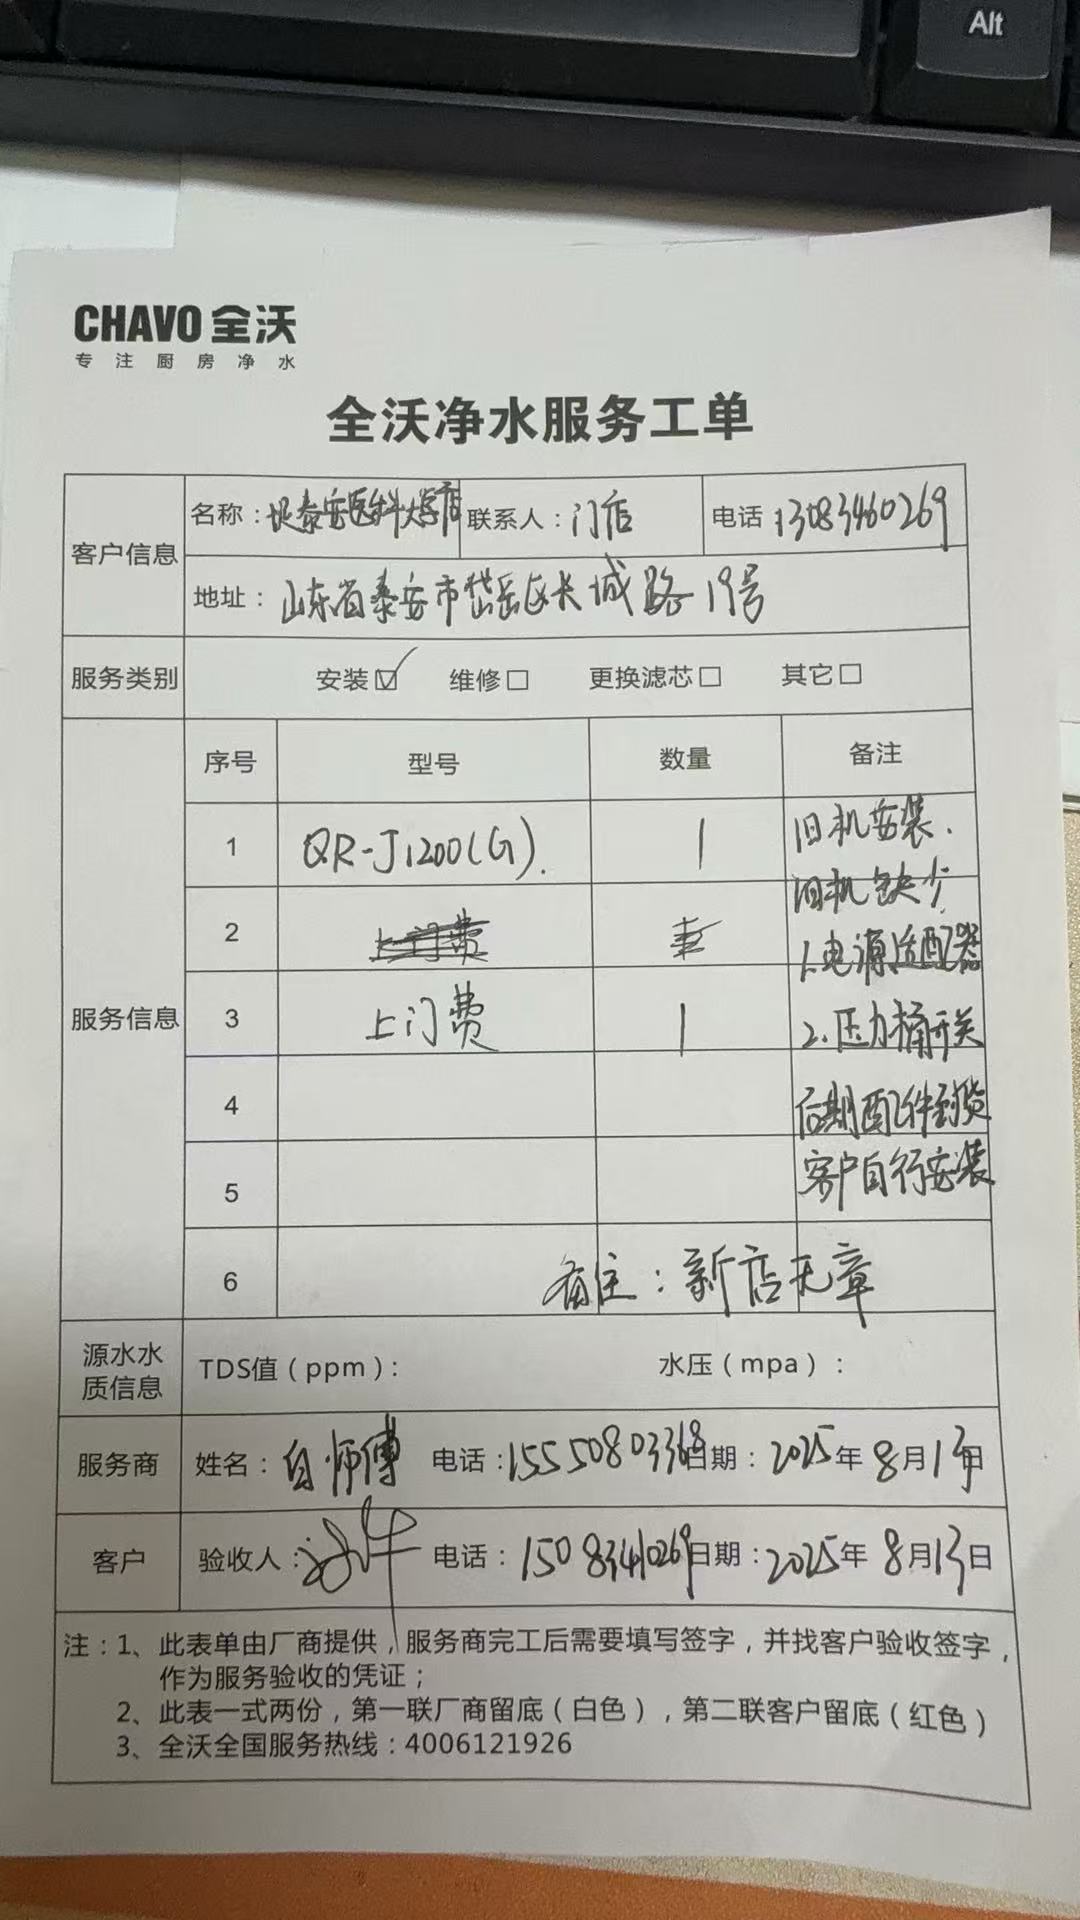 Alt
CHAVO 全沃
专注厨房净水
全沃净水服务工单
客户信息 名称：泰安医科大学店 联系人：门店 电话 13083460269
地址：山东省泰安市岱岳区长城路19号
服务类别 安装☑ 维修□ 更换滤芯□ 其它□
服务信息 序号 型号 数量 备注
1 QR-J1200(G). 1 旧机安装.
旧机缺少
2 上门费
1.电源适配器
3 上门费 1 2.压力桶开关
4 后期配件到货
5 客户自行安装
6 备注：新店无章
源水水质信息 TDS值（ppm）： 水压（mpa）：
服务商 姓名：白师傅 电话：15550803368 日期：2025年8月13日
客户 验收人： 电话： 日期：2025年8月13日
注：1、此表单由厂商提供，服务商完工后需要填写签字，并找客户验收签字，
作为服务验收的凭证；
2、此表一式两份，第一联厂商留底（白色），第二联客户留底（红色）
3、全沃全国服务热线：4006121926